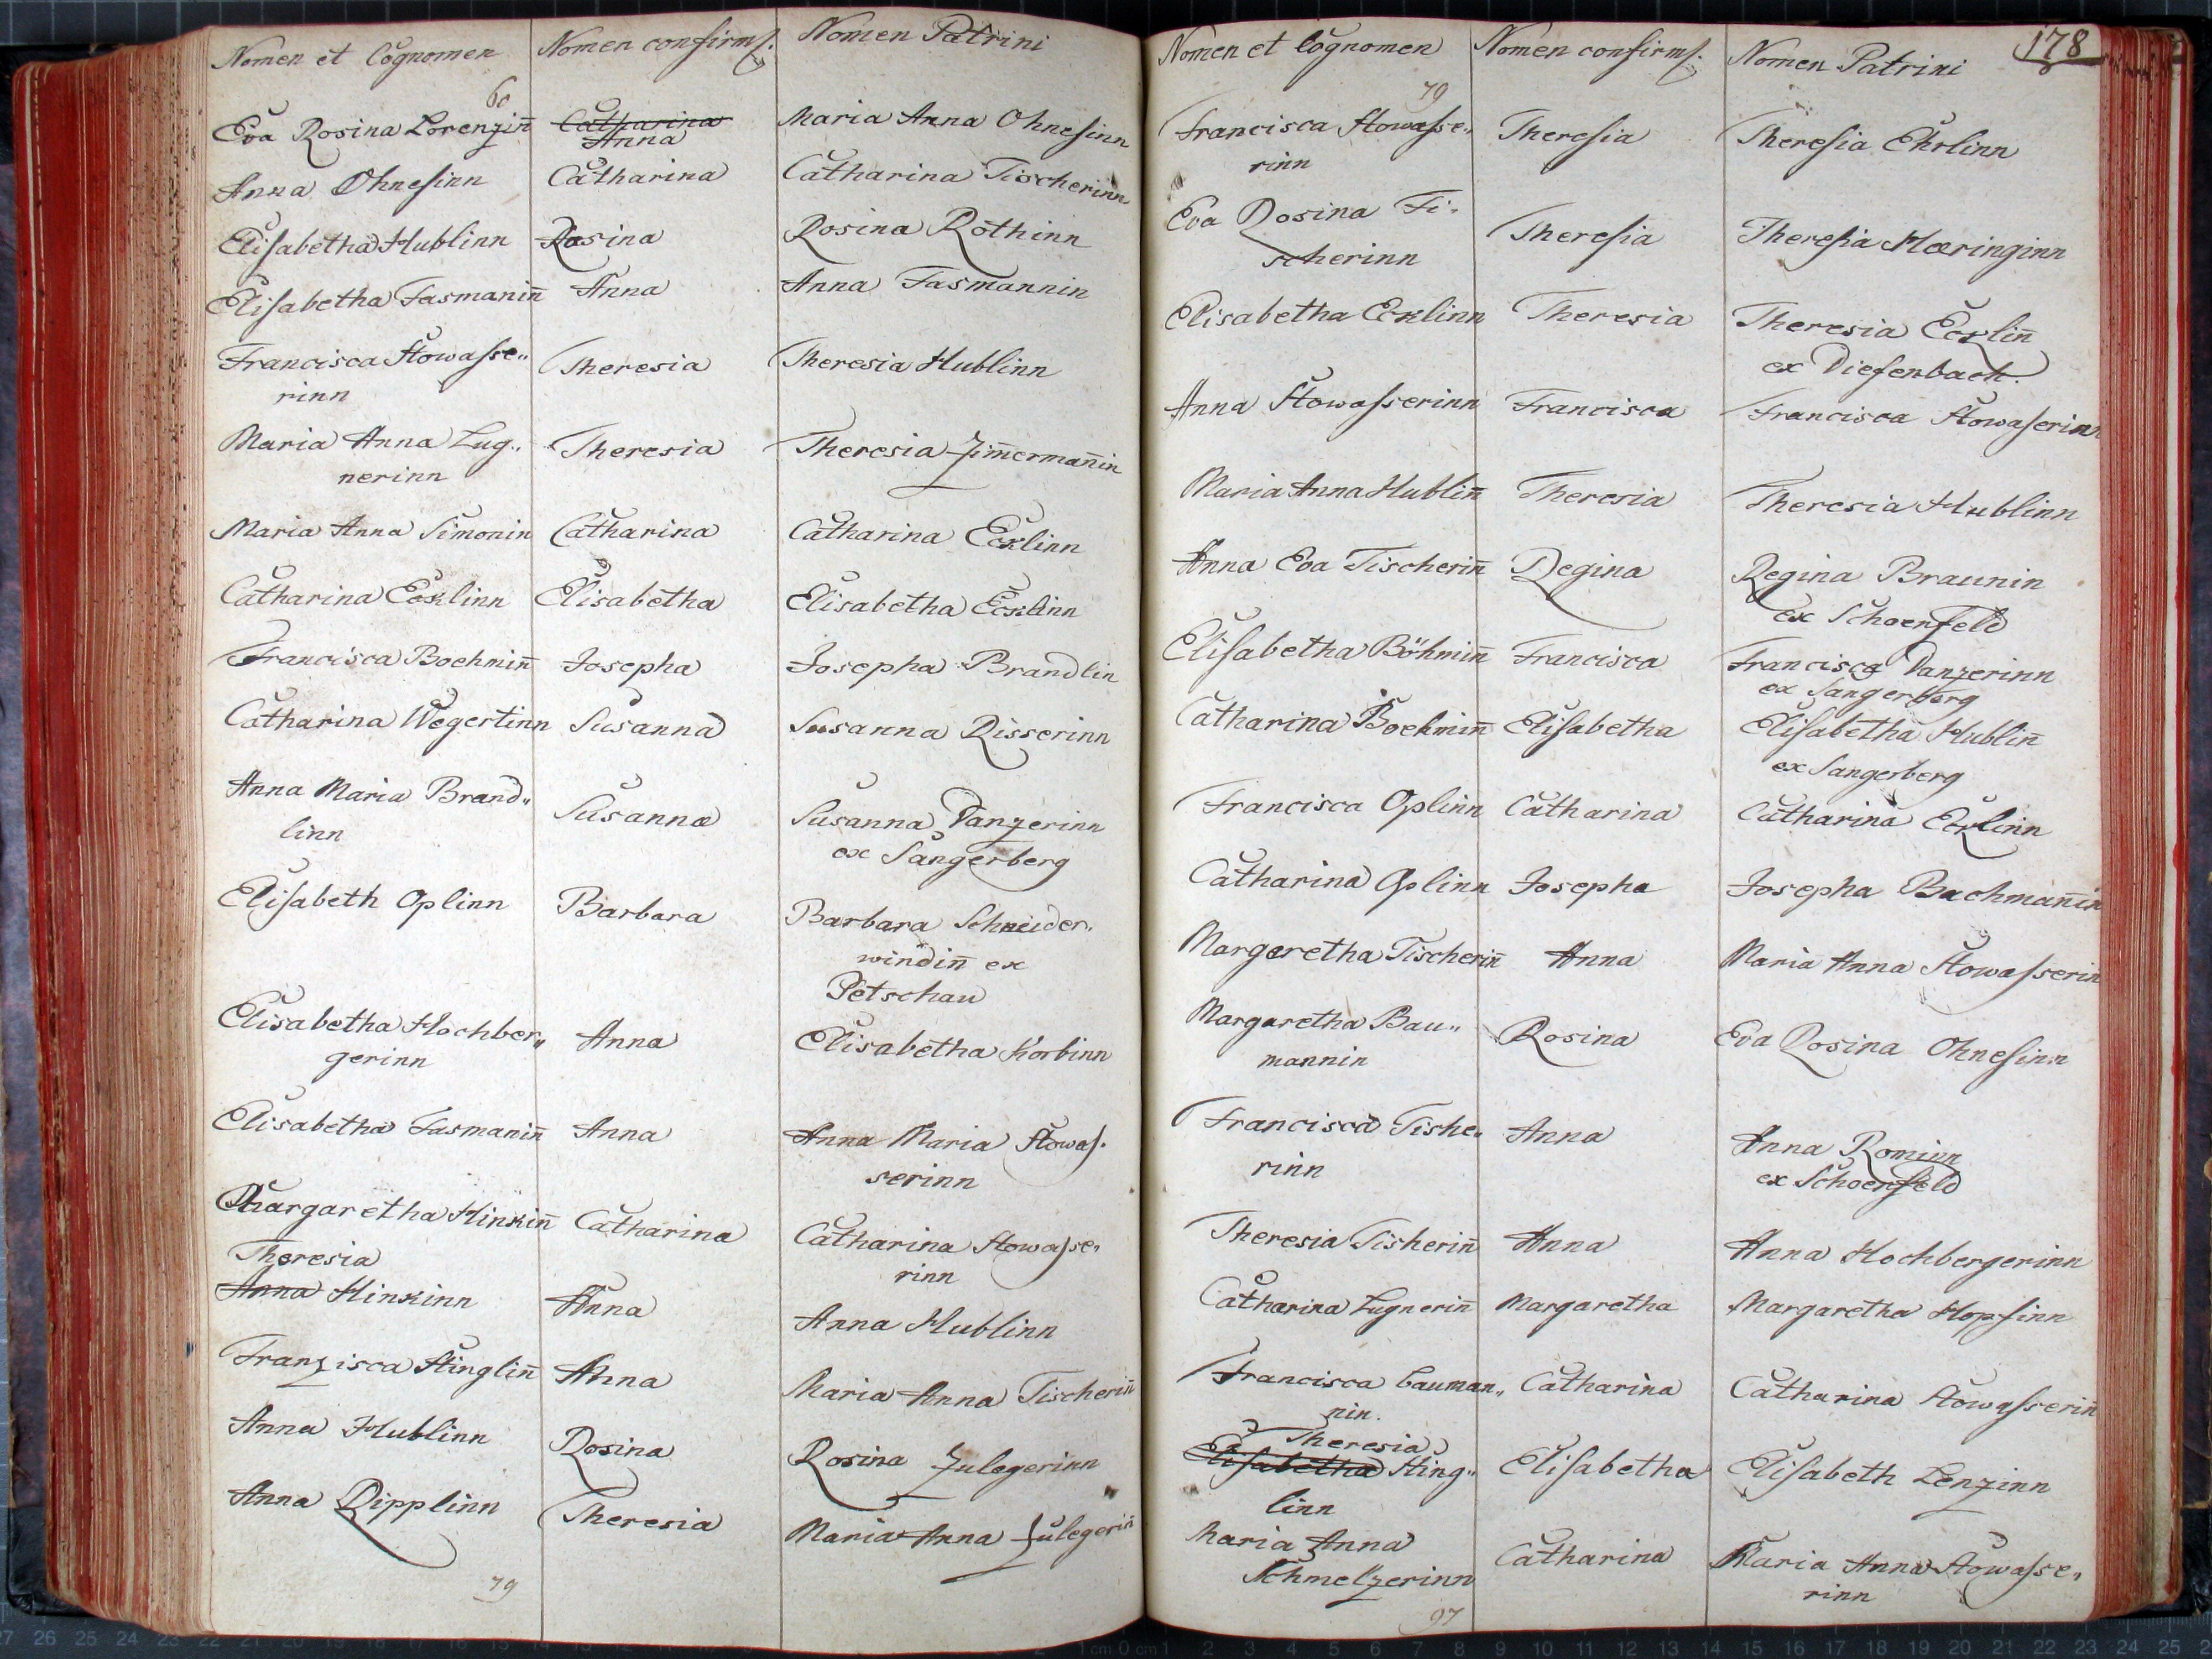 Nomen et Cognomen Nomen confirm. Nomen Patrini
60
Eva Rosina Lorenzin̄ Catharina Maria Anna Ohnesinn
Anna
Anna Ohnesinn Catharina Catharina Tischerinn
Elisabetha Hublinn Rosina Rosina Rothinn
Elisabetha Fasmanin̄ Anna Anna Fasmannin
Francisca Stowasse„ Theresia Theresia Hublinn
rinn
Maria Anna Lug„ Theresia Theresia Zim̄erman̄in
nerinn
Maria Anna Simonin Catharina Catharina Ecklinn
Catharina Ecklinn Elisabetha Elisabetha Ecklinn
Francisca Boehmin̄ Josepha Josepha Brandlin
Catharina Wegertinn Susanna Susanna Risserinn
Anna Maria Brand„ Susanna Susanna Danzerinn
linn ex Sangerberg
Elisabeth Oplinn Barbara Barbara Schneider„
windin̄ ex
Petschau
Elisabetha Hochber„ Anna Elisabetha Korbinn
gerinn
Elisabetha Fasmanin̄ Anna Anna Maria Stowas„
serinn
Margaretha Hinkin̄ Catharina Catharina Stowasse„
rinn
Theresia
Anna Hinkinn Anna Anna Hublinn
Franzisca Stinglin̄ Anna Maria Anna Tischerin̄
Anna Hublinn Rosina Rosina Zulegerinn
Anna Ripplinn Theresia Maria Anna Zulegerin̄
79
178
Nomen et Cognomen Nomen confirm. Nomen Patrini
79
Francisca Stowasse„ Theresia Theresia Ehrlinn
rinn
Eva Rosina Fi„ Theresia Theresia Hæringinn
scherinn
Elisabetha Ecklinn Theresia Theresia Ecklin̄
ex Diefenbach.
Anna Stowasserinn Francisca Francisca Stowaserinn
Maria Anna Hublin̄ Theresia Theresia Hublinn
Anna Eva Tischerin̄ Regina Regina Braunin
ex Schoenfeld
Elisabetha Böhmin̄ Francisca Francisca Danzerinn
ex Sangerberg
Catharina Boehmin̄ Elisabetha Elisabetha Hublin̄
ex Sangerberg
Francisca Oplinn Catharina Catharina Ecklinn
Catharina Oplinn Josepha Josepha Bachman̄in
Margaretha Tischerin̄ Anna Maria Anna Stowasserin
Margaretha Bau„ Rosina Eva Rosina Ohnesinn
mannin
Francisca Tische„ Anna Anna Romien
rinn ex Schoenfeld
Theresia Tisherin̄ Anna Anna Hochbergerinn
Catharina Lugnerin̄ Margaretha Margaretha Hopfinn
Francisca bauman„ Catharina Catharina Stowasserin̄
nin.
Theresia
Elisabetha Sting„ Elisabetha Elisabeth Lenzinn
linn
Maria Anna Catharina Maria Anna Stowasse„
Schmelzerinn rinn
97